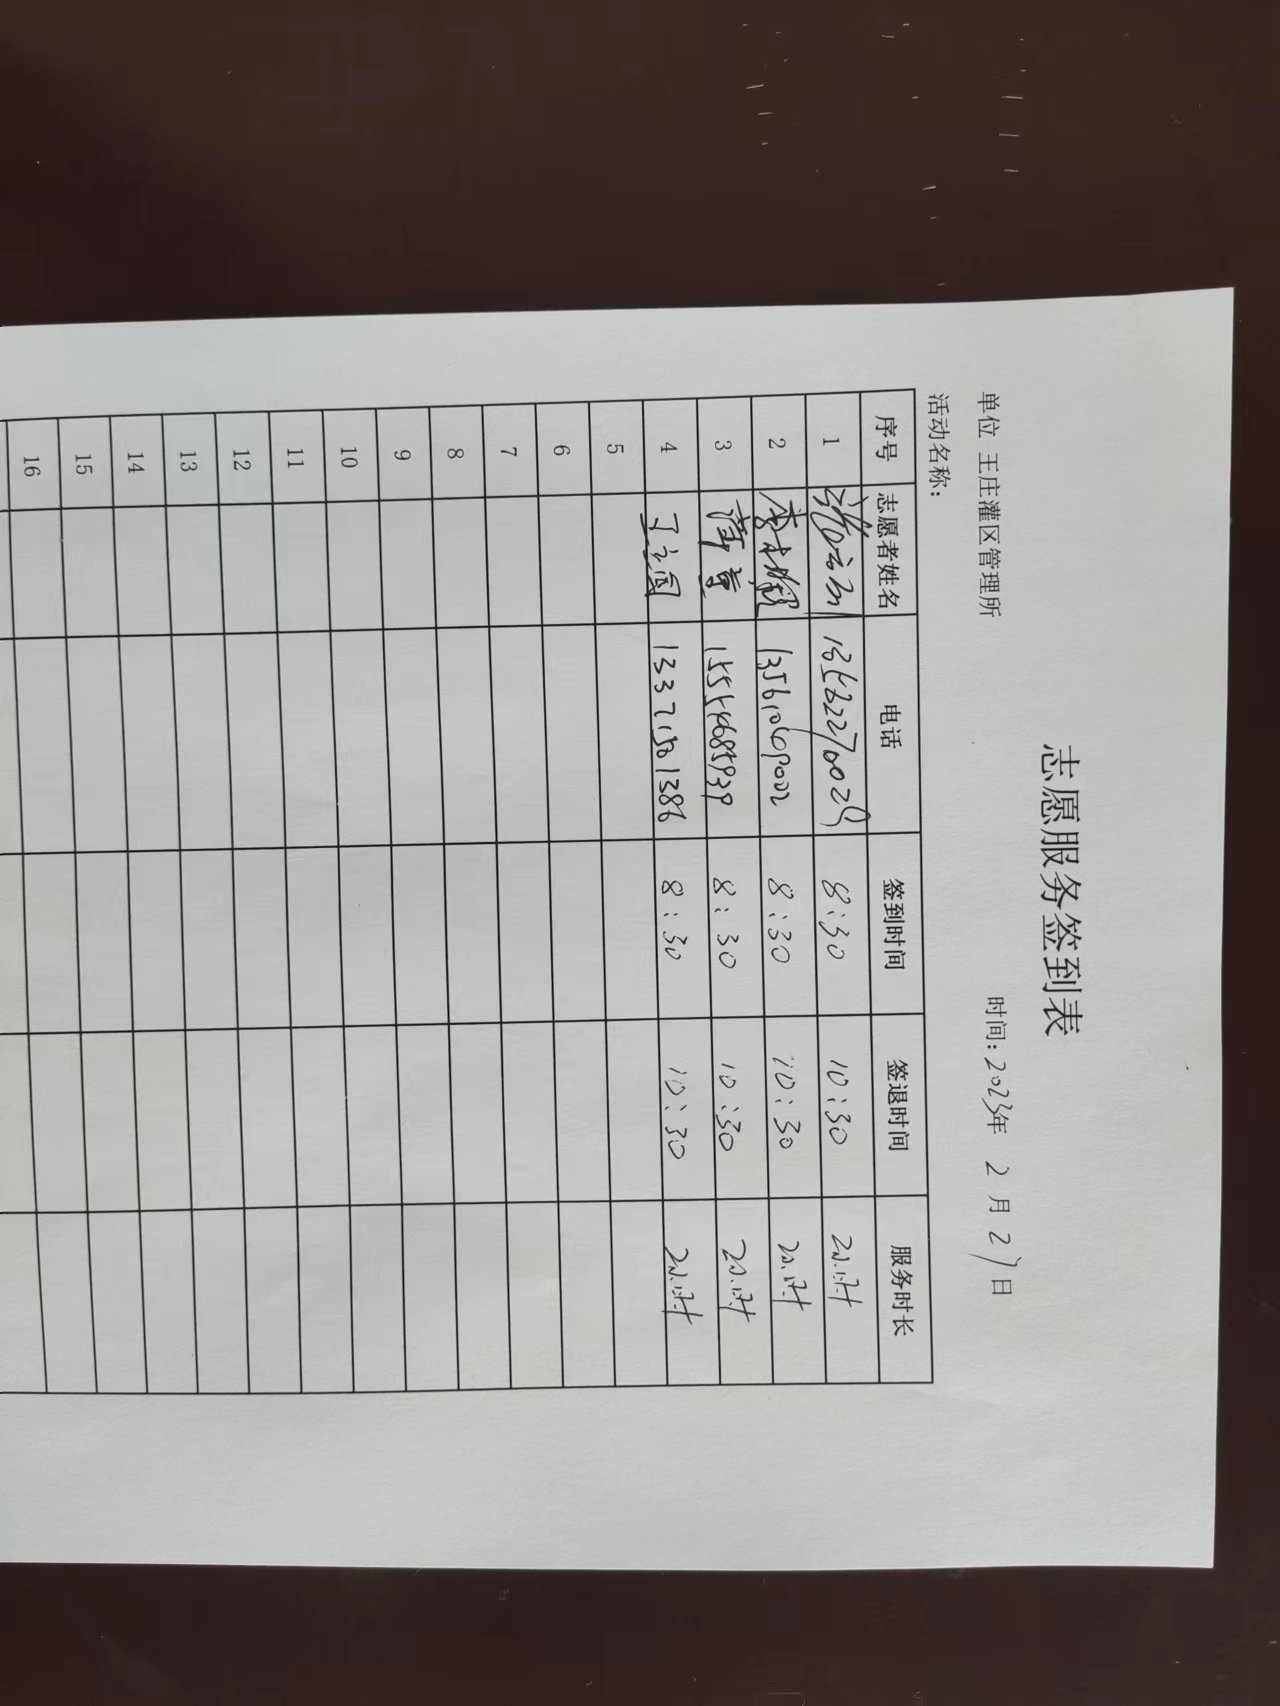 志愿服务签到表
单位 王庄灌区管理所 时间:2023年 2 月 27日
活动名称:
序号 志愿者姓名 电话 签到时间 签退时间 服务时长
1 8:30 10:30 2小时
2 13561069002 8:30 10:30 2小时
3 8:30 10:30 2小时
4 13371501386 8:30 10:30 2小时
5
6
7
8
9
10
11
12
13
14
15
16